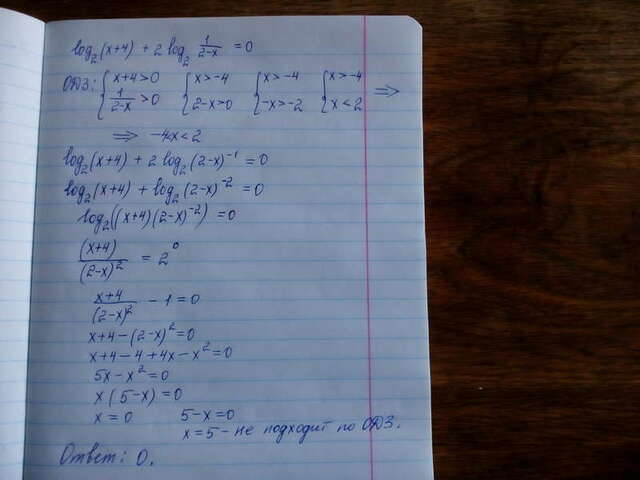 log₂(x+4) + 2 log₂ 1/(2-x) = 0
ОДЗ: { x+4>0 { x>-4 { x>-4 { x>-4 ⟹
1/(2-x) >0 2-x>0 -x>-2 x<2
⟹ -4<x<2
log₂(x+4) + 2 log₂(2-x)⁻¹ = 0
log₂(x+4) + log₂(2-x)⁻² = 0
log₂((x+4)(2-x)⁻²) = 0
(x+4)/(2-x)² = 2⁰
x+4/(2-x)² - 1 = 0
x+4-(2-x)²=0
x+4-4+4x-x²=0
5x-x²=0
x(5-x)=0
x=0 5-x=0
x=5 - не подходит по ОДЗ.
Ответ: 0.